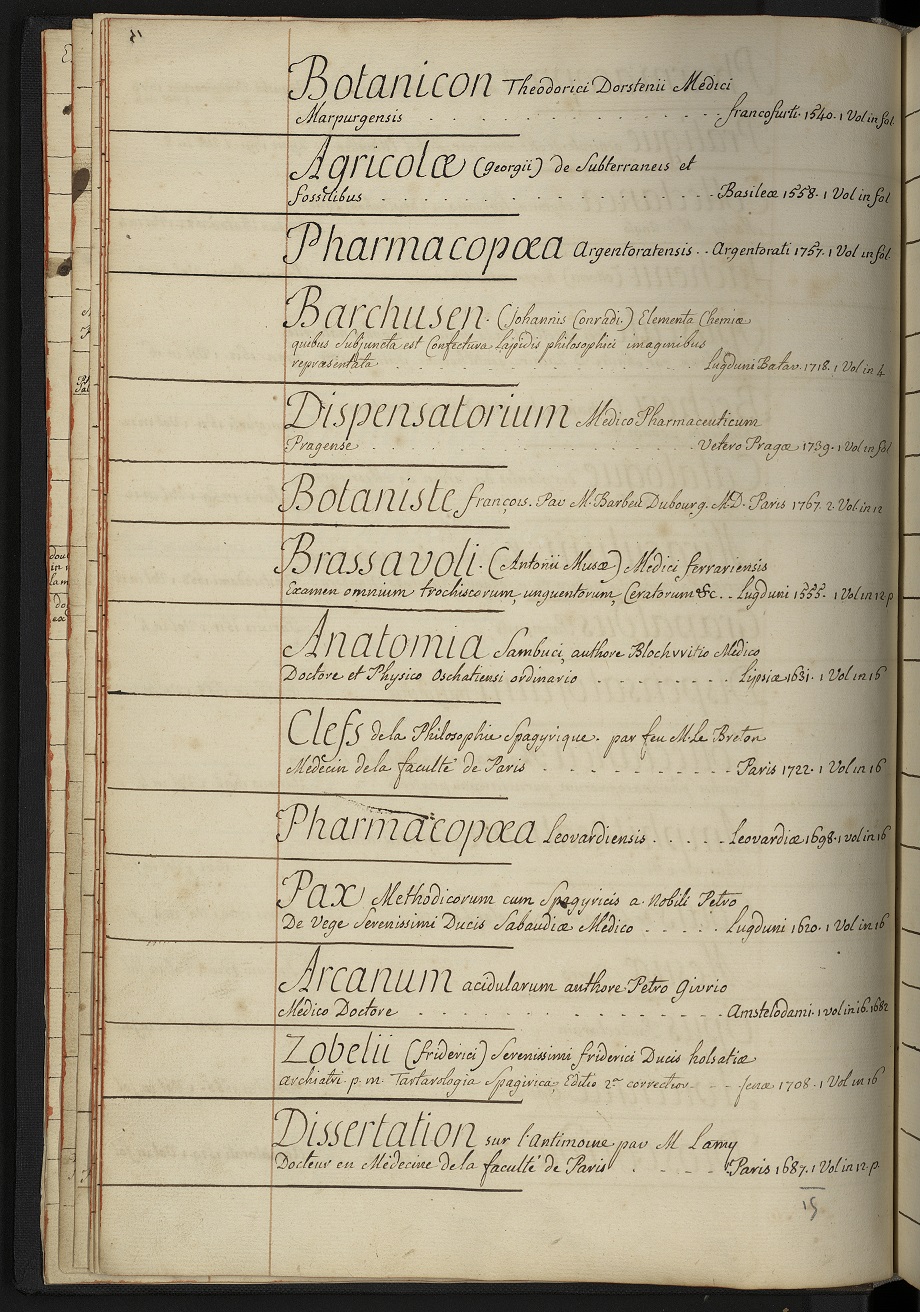 Botanicon Theodorici Dorstenii Medici
Marpurgensis . . . . . . . . . . . . . . . . francofurti. 1540. 1 Vol in fol
Agricolæ (georgii) de Subterraneis et
fossilibus . . . . . . . . . . . . . . . . Basileæ 1558. 1 Vol in fol
Pharmacopœa Argentoratensis . . Argentorati 1757. 1 Vol in fol
Barchusen. (Johannis Conradi.) Elementa Chemiæ
quibus Subjuncta est Confectura Lapidis philosophici imaginibus
repræsentata . . . . . . . . . . . . . . . . Lugduni Batav. 1718. 1 Vol in 4
Dispensatorium Medico Pharmaceuticum
Pragense . . . . . . . . . . . . . . . . Vetero Pragæ 1739. 1 Vol in fol
Botaniste françois. Par M. Barbeu Dubourg. M.D. Paris 1767. 2. Vol. in 12
Brassavoli. (Antonii Musæ) Médici ferrariensis
Examen omnium trochiscorum, unguentorum, Ceratorum &c. . . Lugduni 1555. 1 Vol in 12 p
Anatomia Sambuci, authore Blochvvitio Médico
Doctore et Physico Oschatiensi ordinario . . . . . . . . Lipsiæ 1631. 1 Vol in 16
Clefs de la Philosophie Spagyrique. par feu M. Le Breton
Médecin de la faculté de Paris . . . . . . . . . . Paris 1722. 1 Vol in 16
Pharmacopœa Leovardiensis . . . . . Leovardiæ 1698. 1 vol in 16
Pax Methodicorum cum Spagyricis a nobili Petro
De Vege Serenissimi Ducis Sabaudiæ Médico . . . . . Lugduni 1620. 1 Vol in 16
Arcanum acidularum authore Petro givrio
Médico Doctore . . . . . . . . . . . . . Amstelodami. 1 vol in 16. 1682
Zobelii (friderici) Serenissimi friderici Ducis holsatiæ
archiatri. p. m. Tartarologia Spagirica, Editio 2ª correctior - - Jenæ 1708. 1 Vol in 16
Dissertation sur l'antimoine par M Lamy
Docteur en Médecine de la faculté de Paris . . . . Paris 1687. 1 Vol in 12. p.
15